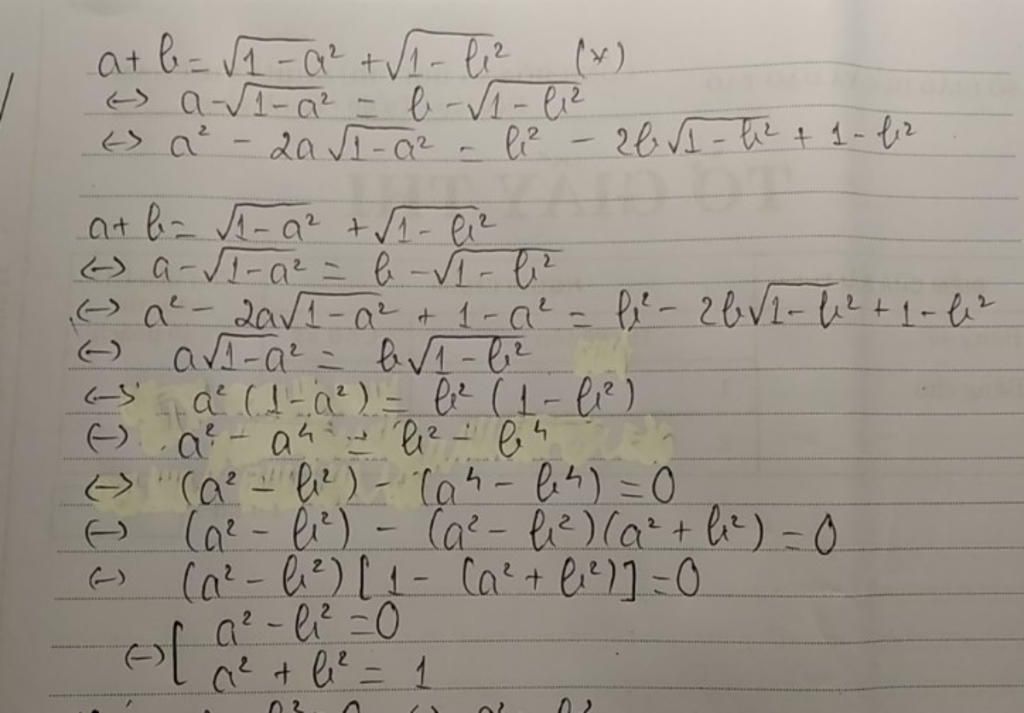 a + b = √(1 - a²) + √(1 - b²) (*)
⟺ a - √(1 - a²) = b - √(1 - b²)
⟺ a² - 2a√(1 - a²) = b² - 2b√(1 - b²) + 1 - b²
a + b = √(1 - a²) + √(1 - b²)
⟺ a - √(1 - a²) = b - √(1 - b²)
⟺ a² - 2a√(1 - a²) + 1 - a² = b² - 2b√(1 - b²) + 1 - b²
⟺ a√(1 - a²) = b√(1 - b²)
⟺ a² (1 - a²) = b² (1 - b²)
⟺ a² - a⁴ = b² - b⁴
⟺ (a² - b²) - (a⁴ - b⁴) = 0
⟺ (a² - b²) - (a² - b²)(a² + b²) = 0
⟺ (a² - b²) [1 - (a² + b²)] = 0
⟺ [ a² - b² = 0
a² + b² = 1